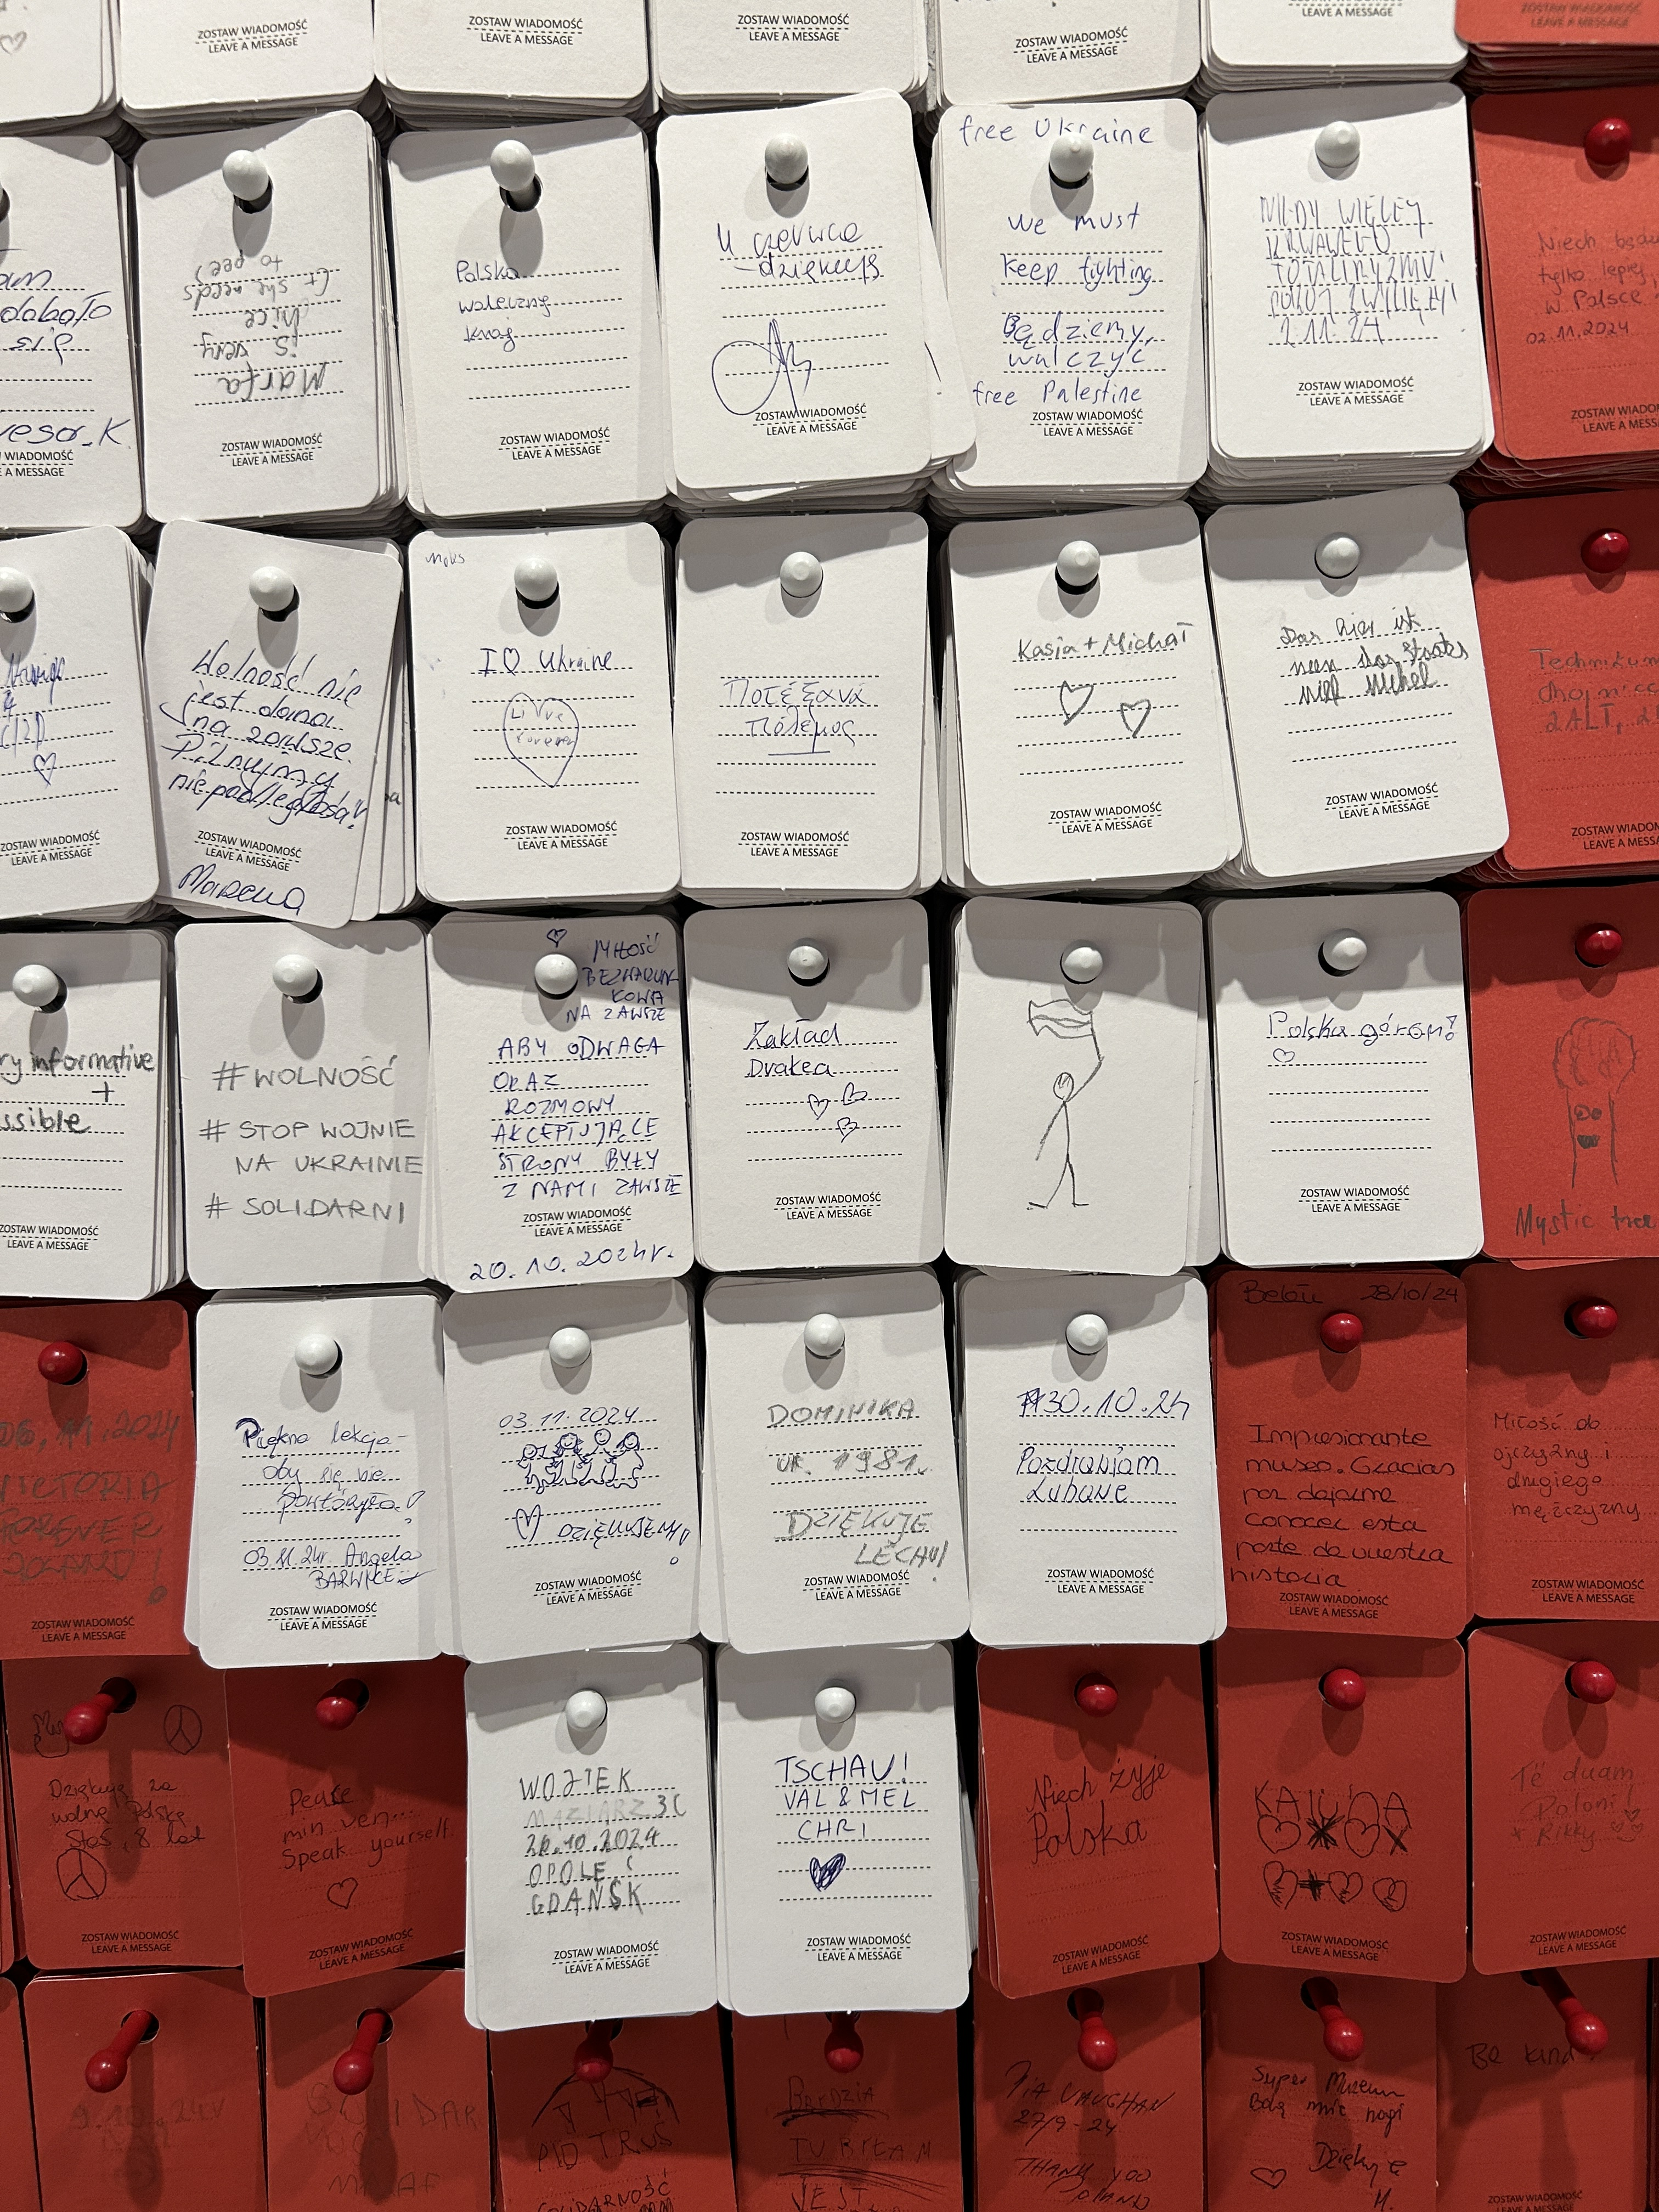 ZOSTAW WIADOMOŚĆ
LEAVE A MESSAGE
ZOSTAW WIADOMOŚĆ
LEAVE A MESSAGE
ZOSTAW WIADOMOŚĆ
LEAVE A MESSAGE
ZOSTAW WIADOMOŚĆ
LEAVE A MESSAGE
ZOSTAW WIADOMOŚĆ
LEAVE A MESSAGE
LEAVE A MESSAGE
się
WIADOMOŚĆ
E A MESSAGE
Marta
is very
nice
(t she needs
to pee)
ZOSTAW WIADOMOŚĆ
LEAVE A MESSAGE
Polska
waleczny
kraj
ZOSTAW WIADOMOŚĆ
LEAVE A MESSAGE
4 czerwca
- dziękuję
ZOSTAW WIADOMOŚĆ
LEAVE A MESSAGE
free Ukraine
we must
keep fighting
Będziemy
walczyć
free Palestine
ZOSTAW WIADOMOŚĆ
LEAVE A MESSAGE
NIGDY WIĘCEJ
KRWAWEGO
TOTALITYZMU!
POKÓJ ZWYCIĘŻY!
2.11.24
ZOSTAW WIADOMOŚĆ
LEAVE A MESSAGE
Niech będzie
tylko lepiej
w Polsce
02.11.2024
ZOSTAW WIADOM
LEAVE A MESSA
ZOSTAW WIADOMOŚĆ
LEAVE A MESSAGE
Wolność nie
jest dana
na zawsze.
Pilnujmy
niepodległości!
ZOSTAW WIADOMOŚĆ
LEAVE A MESSAGE
Marena
Moks
I ♡ Ukraine
Livve
forever
ZOSTAW WIADOMOŚĆ
LEAVE A MESSAGE
Ποτέ ξανά
πόλεμος
ZOSTAW WIADOMOŚĆ
LEAVE A MESSAGE
Kasia + Michał
ZOSTAW WIADOMOŚĆ
LEAVE A MESSAGE
Das hier ist
ZOSTAW WIADOMOŚĆ
LEAVE A MESSAGE
Technikum
Chojnice
ZOSTAW WIADOM
LEAVE A MESSA
ry informative
+
ssible
ZOSTAW WIADOMOŚĆ
LEAVE A MESSAGE
# WOLNOŚĆ
# STOP WOJNIE
NA UKRAINIE
# SOLIDARNI
♡ MIŁOŚĆ
BEZWARUN
KOWA
NA ZAWSZE
ABY ODWAGA
ORAZ
ROZMOWY
AKCEPTUJĄCE
STRONY BYŁY
Z NAMI ZAWSZE
ZOSTAW WIADOMOŚĆ
LEAVE A MESSAGE
20.10.2024r.
Zakład
Drakea
ZOSTAW WIADOMOŚĆ
LEAVE A MESSAGE
Polska górom!
♡
ZOSTAW WIADOMOŚĆ
LEAVE A MESSAGE
Mystic tree
06.11.2024
VICTORIA
FOREVER
POLAND!
ZOSTAW WIADOMOŚĆ
LEAVE A MESSAGE
Piękna lekcja -
oby się nie
powtórzyła!
03.11.24r. Angela
BARWICE
ZOSTAW WIADOMOŚĆ
LEAVE A MESSAGE
03.11.2024
♡ DZIĘKUJEMY!
ZOSTAW WIADOMOŚĆ
LEAVE A MESSAGE
DOMINIKA
UR. 1981r.
DZIĘKUJĘ
LECHU!
ZOSTAW WIADOMOŚĆ
LEAVE A MESSAGE
30.10.24
Pozdrawiam
Lubanie
ZOSTAW WIADOMOŚĆ
LEAVE A MESSAGE
Belén 28/10/24
Impresionante
museo. Gracias
por dejarme
conocer esta
parte de vuestra
historia
ZOSTAW WIADOMOŚĆ
LEAVE A MESSAGE
Miłość do
ojczyzny i
drugiego
mężczyzny
ZOSTAW WIADOMOŚĆ
LEAVE A MESSAGE
Dziękuję za
wolną Polskę
Staś, 8 lat
ZOSTAW WIADOMOŚĆ
LEAVE A MESSAGE
Peace
min ven...
Speak yourself
♡
ZOSTAW WIADOMOŚĆ
LEAVE A MESSAGE
WOJTEK
MAZIARZ 3C
26.10.2024
OPOLE
GDAŃSK
ZOSTAW WIADOMOŚĆ
LEAVE A MESSAGE
TSCHAU!
VAL & MEL
CHRI
ZOSTAW WIADOMOŚĆ
LEAVE A MESSAGE
Niech żyje
Polska
ZOSTAW WIADOMOŚĆ
LEAVE A MESSAGE
ZOSTAW WIADOMOŚĆ
LEAVE A MESSAGE
Të duam
Poloni!
Rikky
ZOSTAW WIADOMOŚĆ
LEAVE A MESSAGE
PIOTRUŚ
SOLIDARNOŚĆ
TU BYŁAM
JEST
PIA VAUGHAN
27/9-24
THANK YOU
POLAND
Super Muzeum
Bolą mnie nogi
♡ Dziękuję
M.
Be kind!